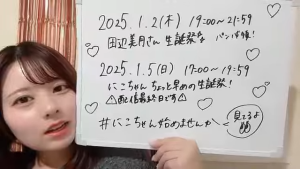 2025.1.2(木) 19:00～21:59
田辺美月さん 生誕祭
2025.1.5(日) 17:00～19:59
にこちゃん ちょっと早めの生誕祭!
日です
#にこちゃん始めませんか
見てるよ